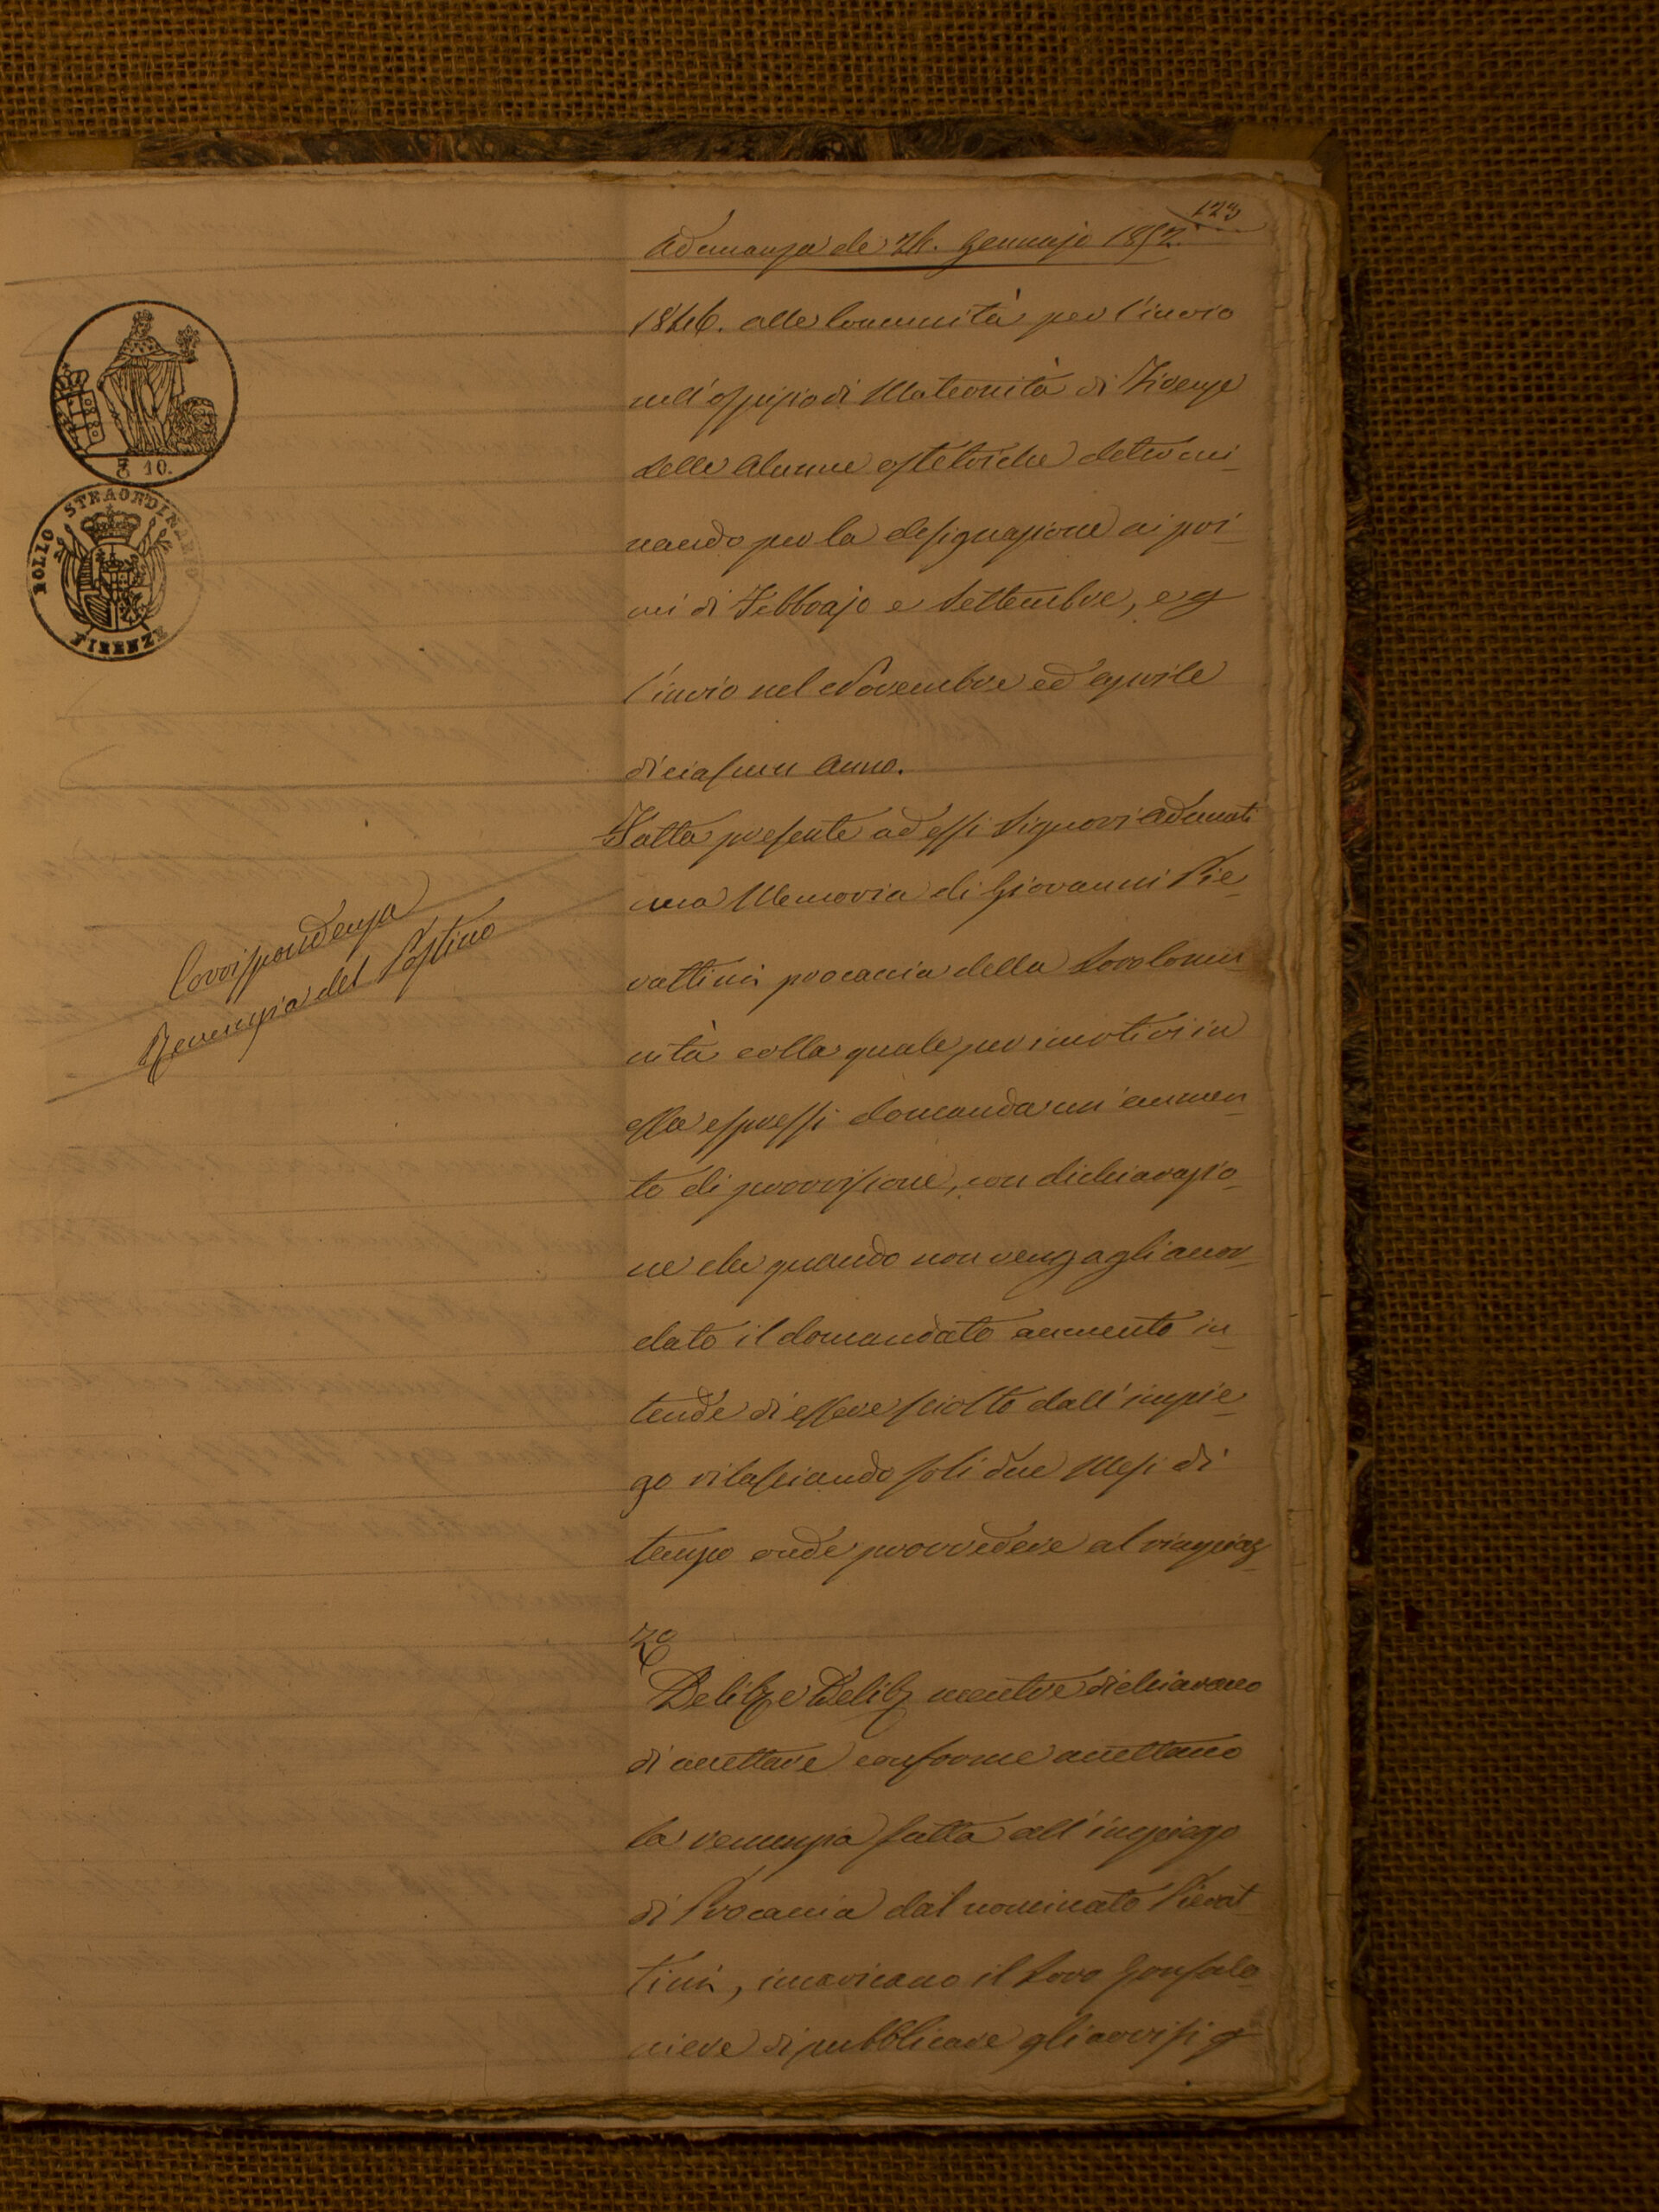 123
Adunanza de 24. Gennajo 1852.
1846. alle Comunità per l'invio
nell'ospizio di Maternità di Firenze
delle Alunne ostetriche determi_
nando per la designazione ai pri_
mi di Febbrajo e Settembre, e p
l'invio nel Novembre ed Aprile
di ciascun Anno.
Fatta presente ad essi Signori Adunati
una Memoria di Giovanni Pie_
rattini procaccia della Loro Comu_
nità colla quale per i motivi in
essa espressi domanda un'aumen_
to di provvisione, con dichiarazio_
ne che quando non venga gli accor_
dato il domandato aumento in_
tende di essere sciolto dall'impie_
go rilasciando soli due Mesi di
tempo onde provvedere al rimpiaz_
zo
Delib e Delib mentre dichiarano
di accettare conforme accettano
la renunzia fatta all'impiego
di Procaccia dal nominato Pierat
tini, incaricano il Loro Gonfalo_
niere di pubblicare gli avvisi p
Corrispondenza
Renunzia del Postino
10.
BOLLO STRAORDINARIO
FIRENZE